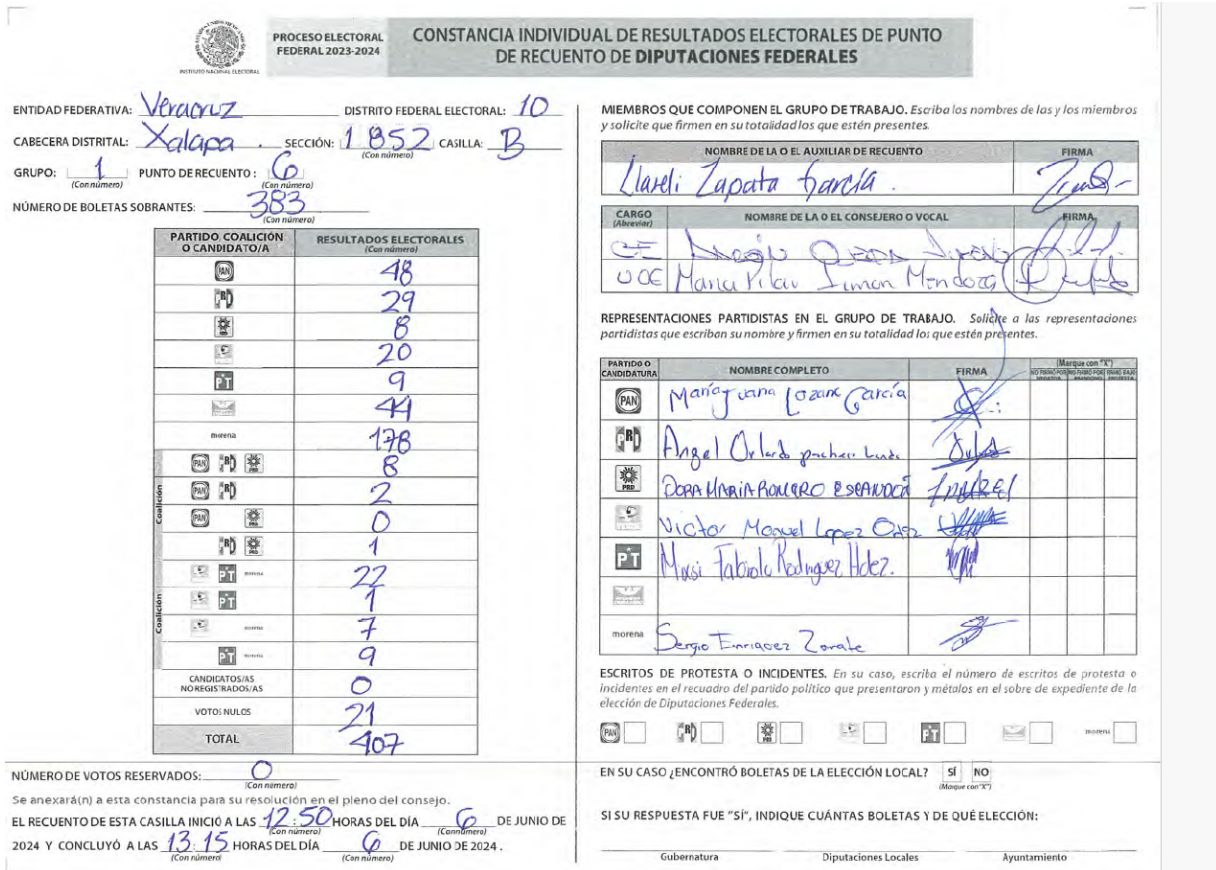 PROCESO ELECTORAL
FEDERAL 2023-2024
INSTITUTO NACIONAL ELECTORAL
CONSTANCIA INDIVIDUAL DE RESULTADOS ELECTORALES DE PUNTO
DE RECUENTO DE DIPUTACIONES FEDERALES
ENTIDAD FEDERATIVA: Veracruz DISTRITO FEDERAL ELECTORAL: 10
CABECERA DISTRITAL: Xalapa. SECCIÓN: 1852 CASILLA: B
(Con número)
GRUPO: 1 PUNTO DE RECUENTO: 6
(Con número) (Con número)
NÚMERO DE BOLETAS SOBRANTES: 383
(Con número)
PARTIDO COALICIÓN O CANDIDATO/A RESULTADOS ELECTORALES (Con número)
PAN 48
PRI 29
PRD 8
20
PT 9
44
morena 178
Coalición
PAN PRI PRD 8
PAN PRI 2
PAN PRD 0
PRI PRD 1
Coalición
PT morena 22
PT 1
morena 7
PT morena 9
CANDIDATOS/AS NO REGISTRADOS/AS 0
VOTOS NULOS 21
TOTAL 407
NÚMERO DE VOTOS RESERVADOS: 0
(Con número)
Se anexará(n) a esta constancia para su resolución en el pleno del consejo.
EL RECUENTO DE ESTA CASILLA INICIÓ A LAS 12:50 HORAS DEL DÍA 6 DE JUNIO DE
(Con número) (Con número)
2024 Y CONCLUYÓ A LAS 13:15 HORAS DEL DÍA 6 DE JUNIO DE 2024.
(Con número) (Con número)
MIEMBROS QUE COMPONEN EL GRUPO DE TRABAJO. Escriba los nombres de las y los miembros
y solicite que firmen en su totalidad los que estén presentes.
NOMBRE DE LA O EL AUXILIAR DE RECUENTO FIRMA
Llareli Zapata García.
CARGO (Abreviar) NOMBRE DE LA O EL CONSEJERO O VOCAL FIRMA
CE
VOE María Pilar Simon Mendoza
REPRESENTACIONES PARTIDISTAS EN EL GRUPO DE TRABAJO. Solicite a las representaciones
partidistas que escriban su nombre y firmen en su totalidad los que estén presentes.
PARTIDO O CANDIDATURA NOMBRE COMPLETO FIRMA (Marque con "X")
NO FIRMÓ POR NEGATIVA NO FIRMÓ POR ABANDONO FIRMÓ BAJO PROTESTA
PAN María Juana Lozano García
PRI Angel Orlando
PRD DORA MARIA ROMERO ESCANDON
Victor Manuel Lopez
PT Fabiola Rodriguez Hdez.
morena Sergio Enriquez Zarate
ESCRITOS DE PROTESTA O INCIDENTES. En su caso, escriba el número de escritos de protesta o
incidentes en el recuadro del partido político que presentaron y métalos en el sobre de expediente de la
elección de Diputaciones Federales.
PAN PRI PRD PT morena
EN SU CASO ¿ENCONTRÓ BOLETAS DE LA ELECCIÓN LOCAL? SÍ NO
(Marque con "X")
SI SU RESPUESTA FUE "SÍ", INDIQUE CUÁNTAS BOLETAS Y DE QUÉ ELECCIÓN:
Gubernatura Diputaciones Locales Ayuntamiento